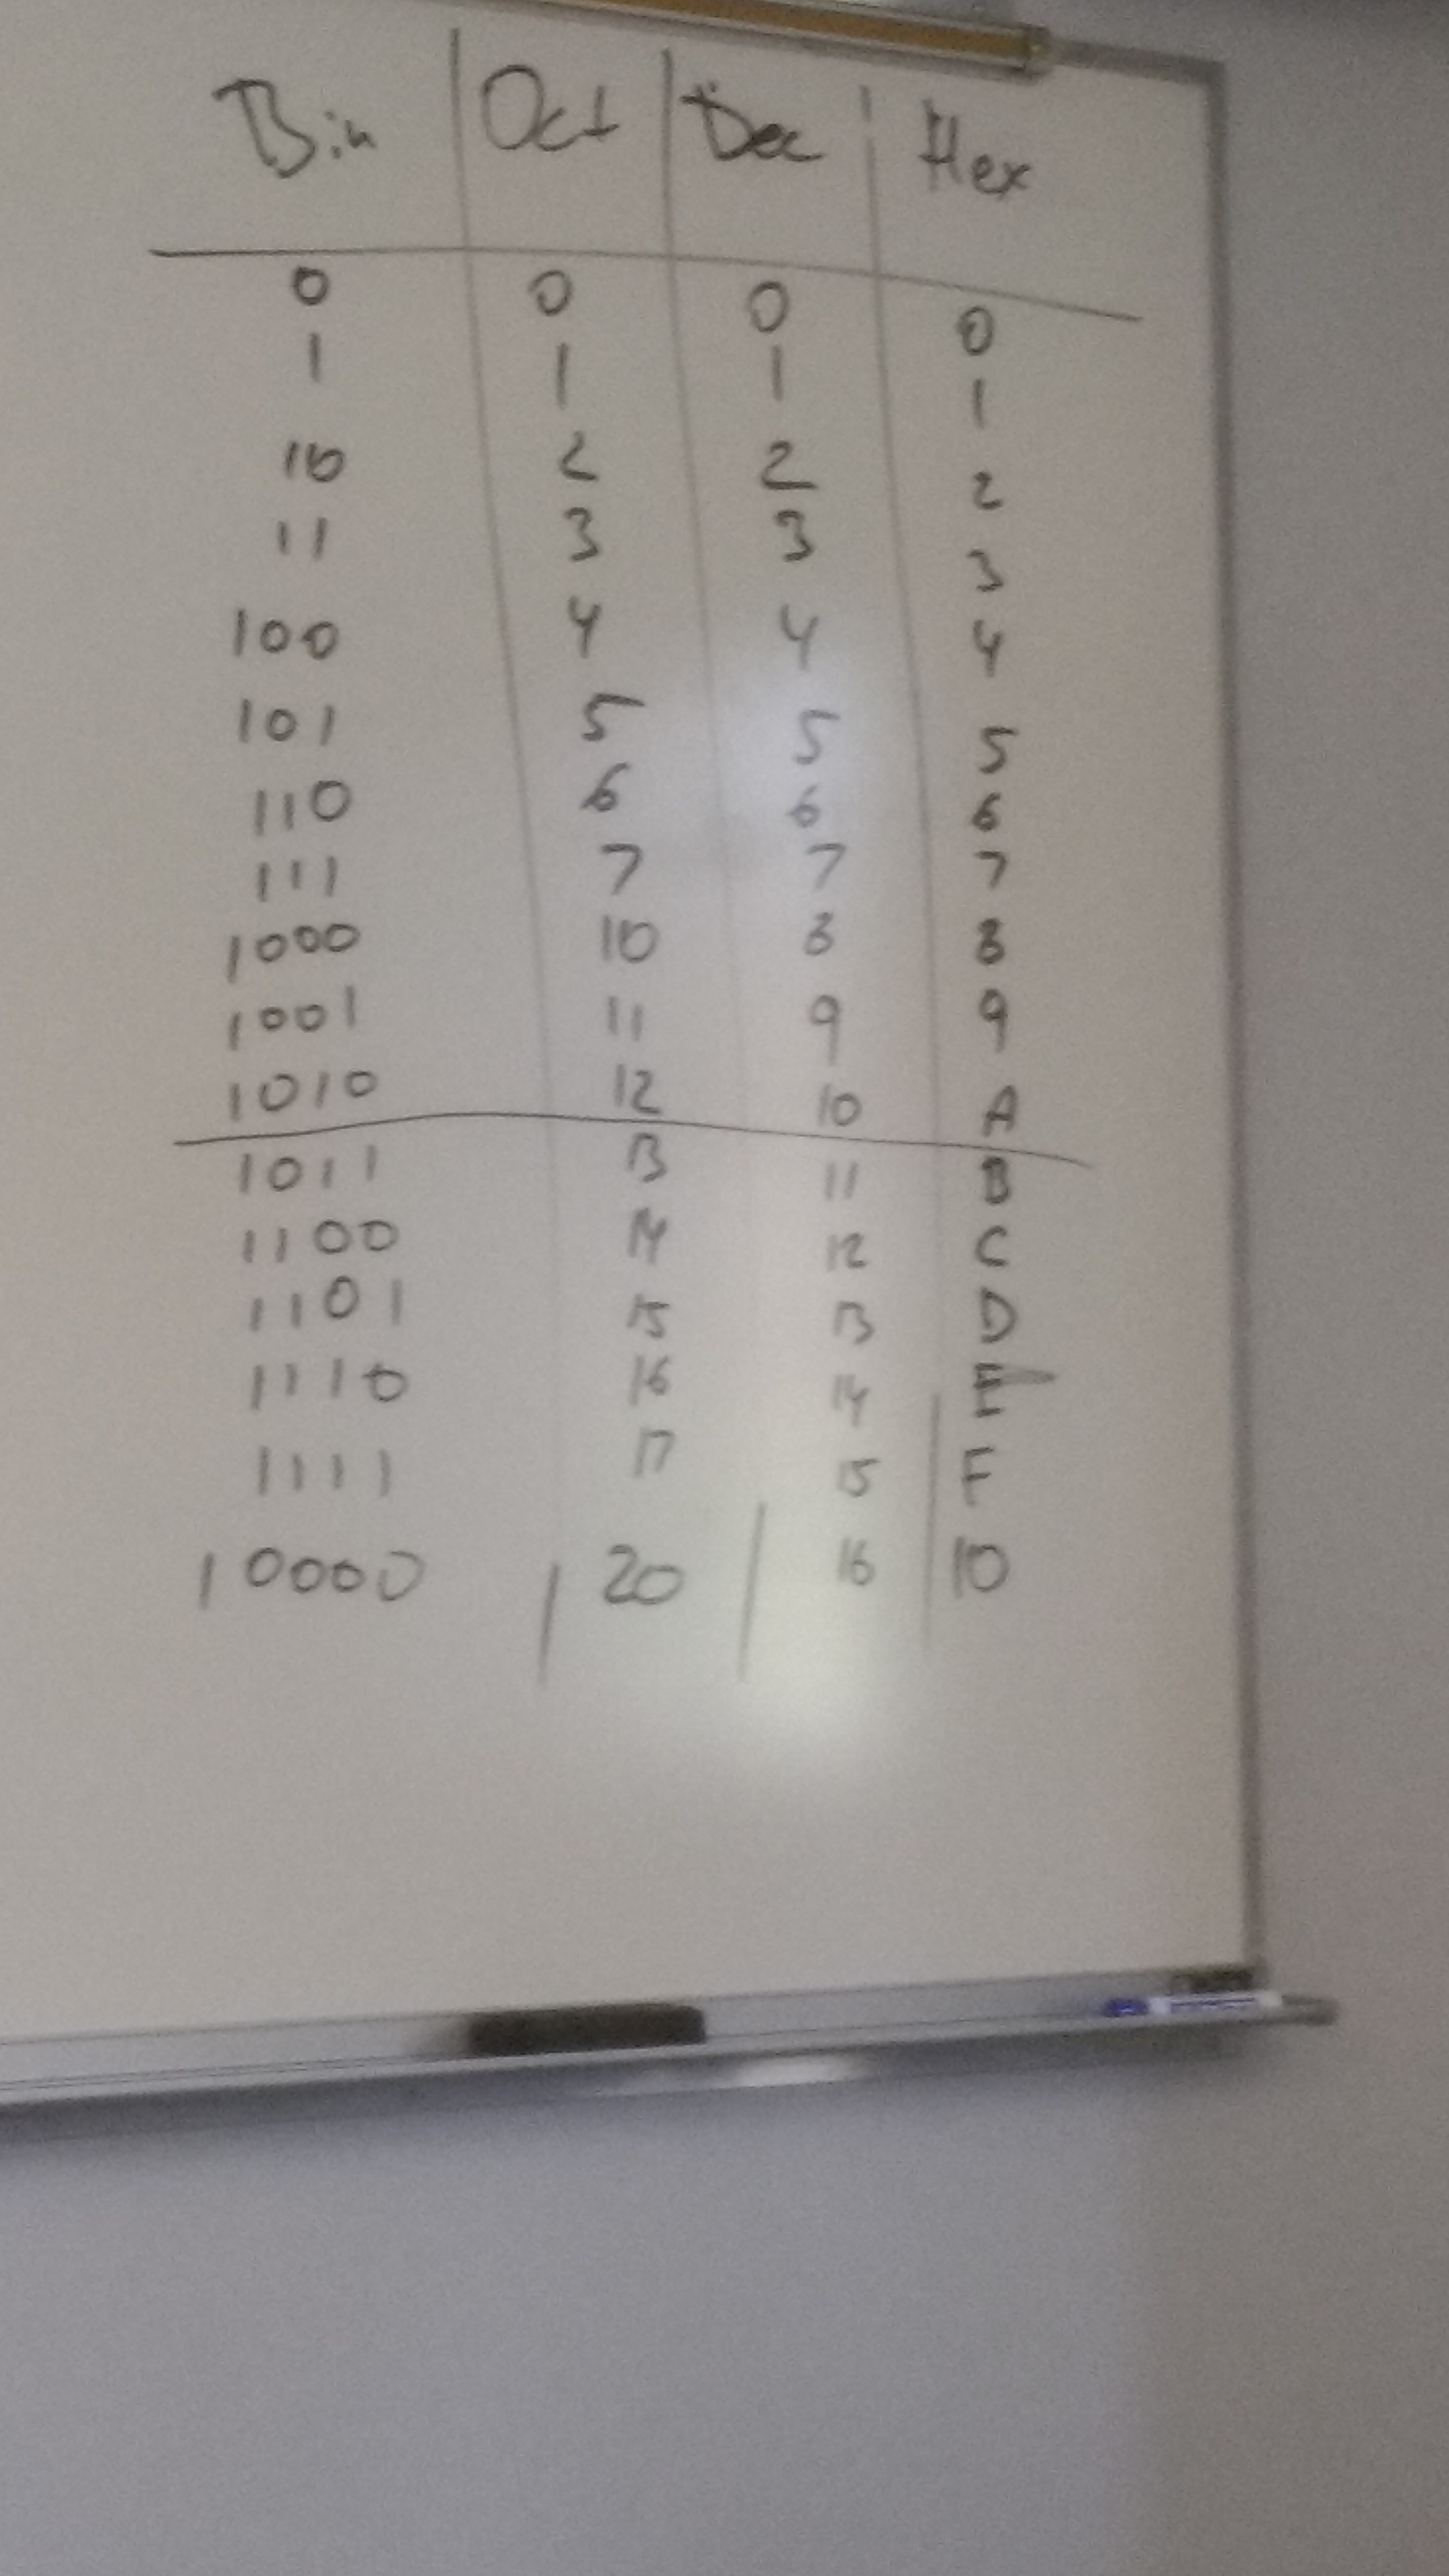 Bin Oct Dec Hex
0 0 0 0
1 1 1 1
10 2 2 2
11 3 3 3
100 4 4 4
101 5 5 5
110 6 6 6
111 7 7 7
1000 10 8 8
1001 11 9 9
1010 12 10 A
1011 13 11 B
1100 14 12 C
1101 15 13 D
1110 16 14 E
1111 17 15 F
10000 20 16 10